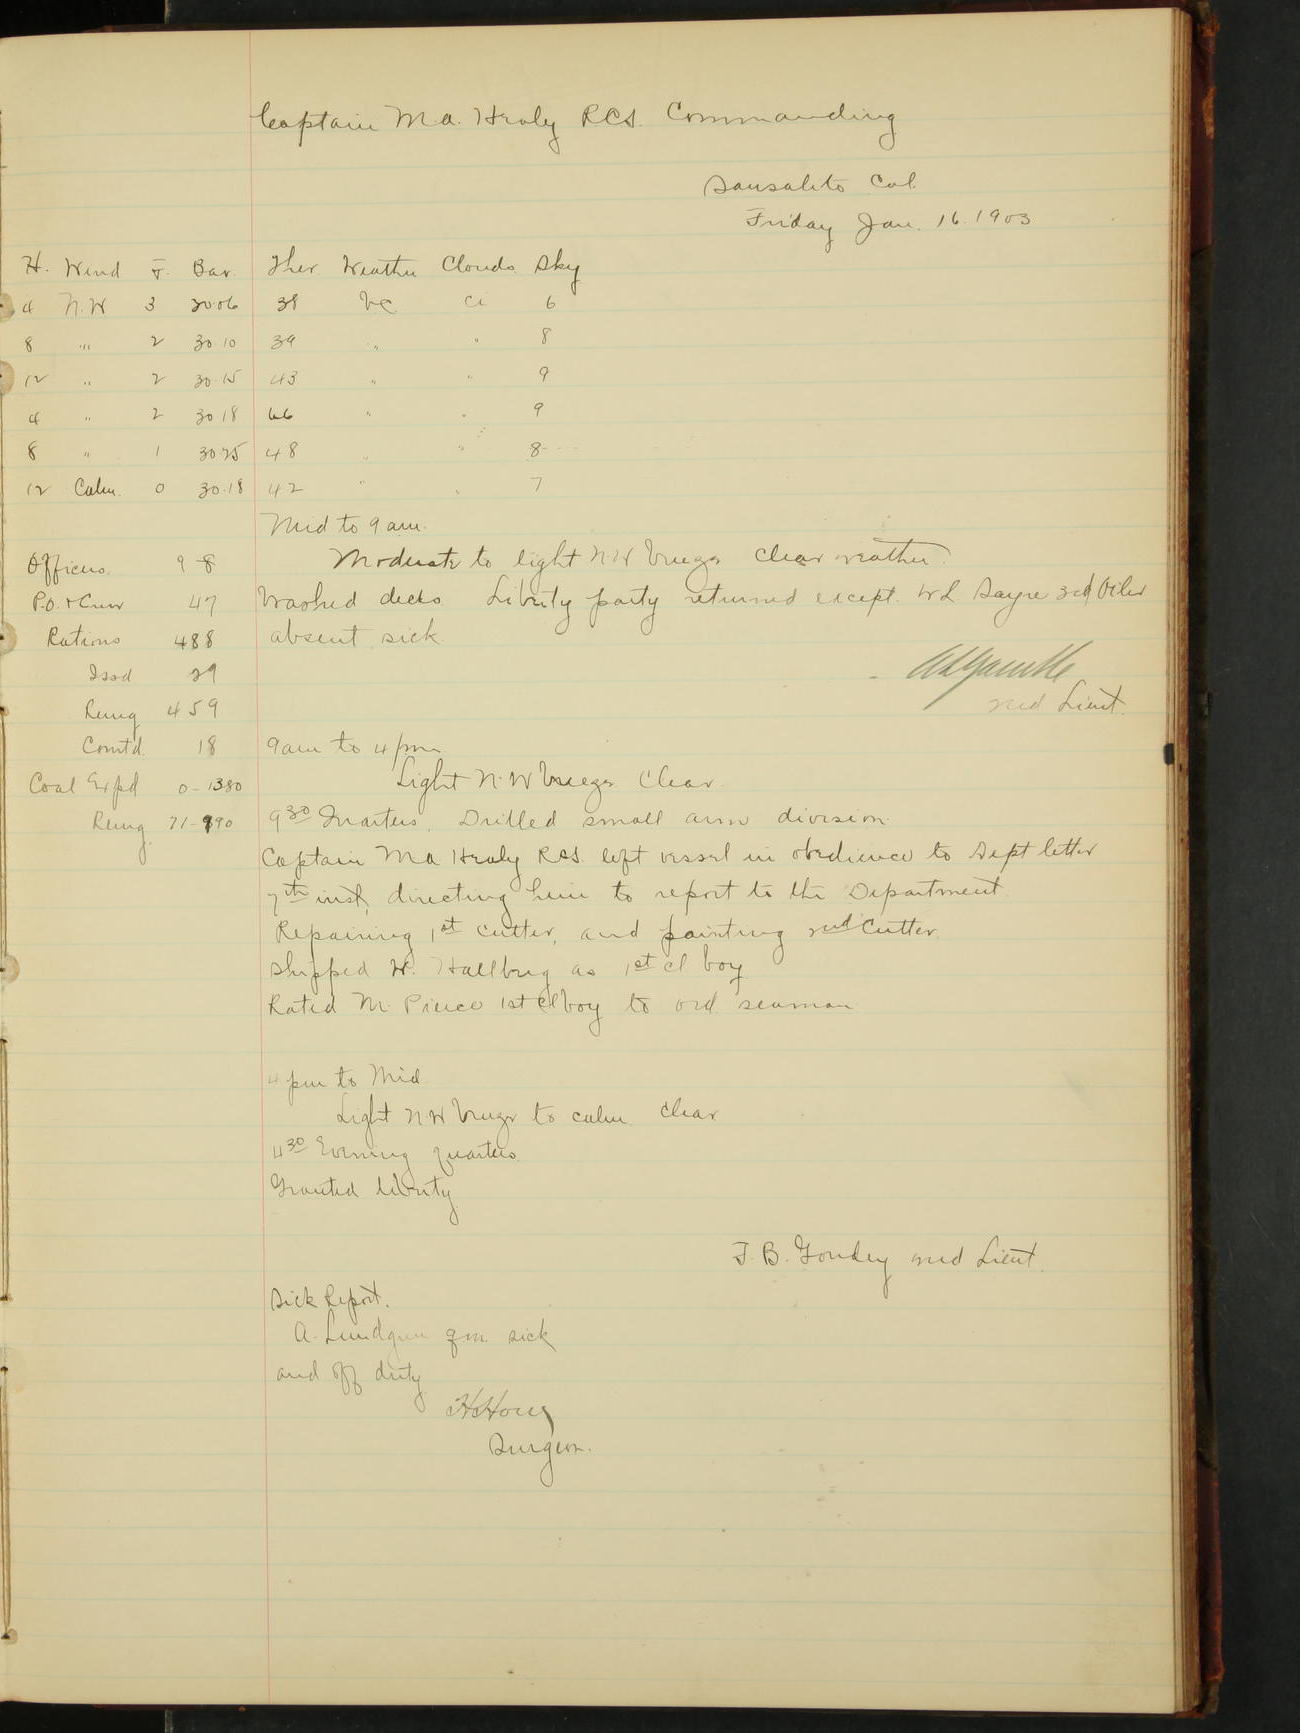 Captain M.A. Healy RCS. Commanding
Sausalito Cal.
Friday Jan. 16. 1903
H. Wind F. Bar. Ther Weather Clouds Sky
4 N.W 3 30.06 38 bc Ci 6
8 " 2 30 10 39 " " 8
12 " 2 30.15 43 " " 9
4 " 2 30 18 66 " " 9
8 " 1 30 25 48 " " 8
12 Calm. 0 30.18 42 " " 7
Mid to 9 am.
Officers. 9-8 Moderate to light N.W breezes clear weather.
P.O. + Crew 47 Washed decks Liberty party returned except. W L Sayre 3rd Oiler
Rations 488 absent sick
Issd 29
2nd Lieut.
Remg 459
Comtd. 18 9 am to 4 pm
Coal Expd 0-1380 Light N.W breezes Clear.
Remg. 71-990 9 30 Quarters. Drilled small arm division.
Captain M A Healy RCS. left vessel in obedience to Dept letter
7th inst, directing him to report to the Department.
Repairing 1st cutter, and painting 2nd Cutter.
Shipped W. Hallberg as 1st cl boy
Rated M. Pierce 1st Cl boy to ord. seaman
4 pm to Mid
Light N W breezes to calm clear
4 30 Evening quarters.
Granted liberty
F. B. Goudey 2nd Lieut.
Sick Report.
A. Lundgren qm sick
and off duty
Surgeon.